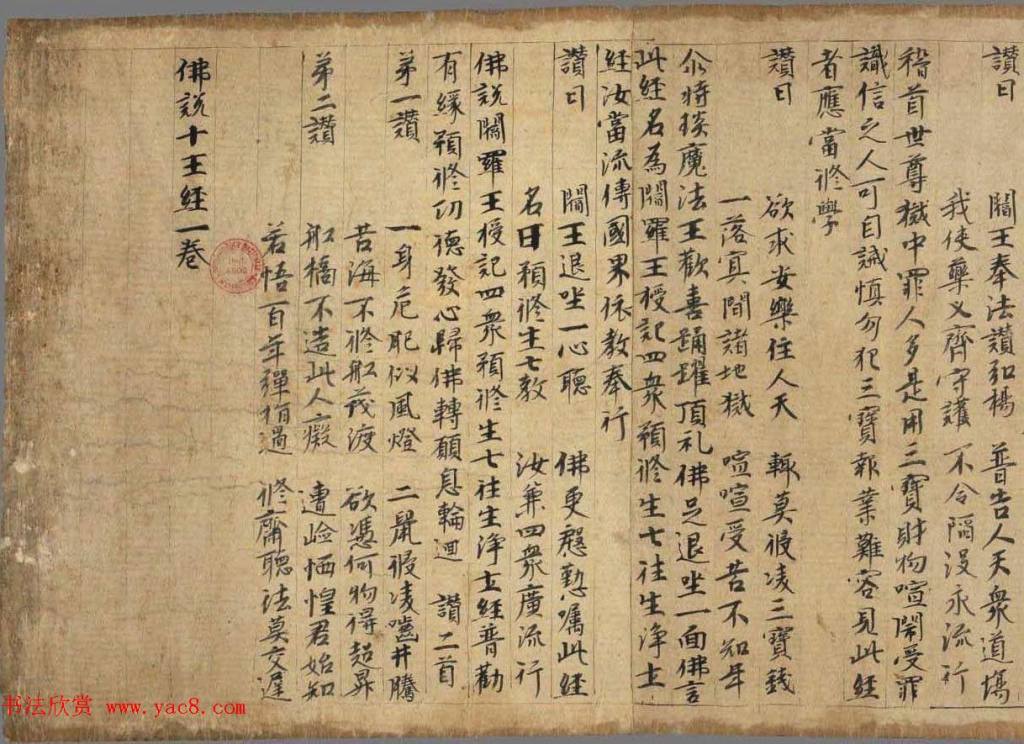 讚曰 閻王奉法讚弘楊 普告人天衆道場
我使藥叉齊守護 不令陷没永流行
稽首世尊獄中罪人多是用三寶財物喧鬧受罪
識信之人可自誡慎勿犯三寶報業難容見此經
者應當修學
讚曰 欲求安樂住人天 輙莫侵凌三寶錢
一落冥間諸地獄 喧喧受苦不知年
尒時琰魔法王歡喜踊躍頂礼佛足退坐一面佛言
此經名為閻羅王授記四衆預修生七往生淨土
經汝當流傳國界依教奉行
讚曰 閻王退坐一心聽 佛更慇懃囑此經
名曰預修生七教 汝兼四衆廣流行
佛說閻羅王授記四衆預修生七往生淨土經普勸
有緣預修功德發心歸佛轉願息輪迴 讚二首
弟一讚 一身危脃似風燈 二鼠侵凌嚙井騰
苦海不修舩茷渡 欲憑何物得超昇
弟二讚 舩橋不造此人癡 遭嶮恓惶君始知
若悟百年彈指過 修齋聽法莫交遲
佛說十王經一卷
书法欣赏 www.yac8.com